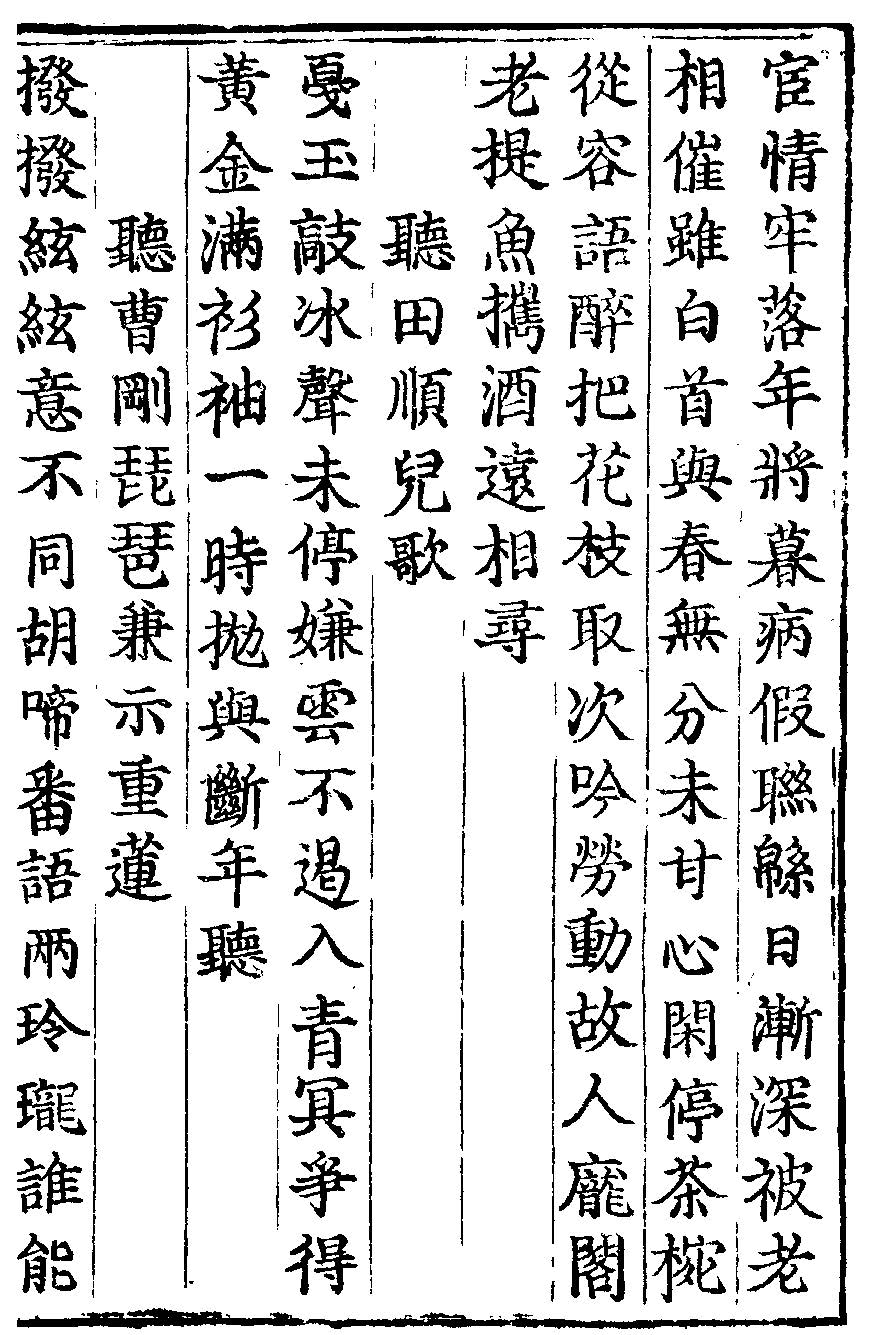 宦情牢落年將暮病假聮緜日漸深被老
相催雖白首與春無分未甘心閑停茶椀
從容語醉把花枝取次吟勞動故人龐閤
老提魚攜酒遠相尋
聽田順兒歌
戛玉敲冰聲未停嫌雲不遏入青冥爭得
黃金滿衫袖一時拋與斷年聽
聽曹剛琵琶兼示重蓮
撥撥絃絃意不同胡啼番語兩玲瓏誰能